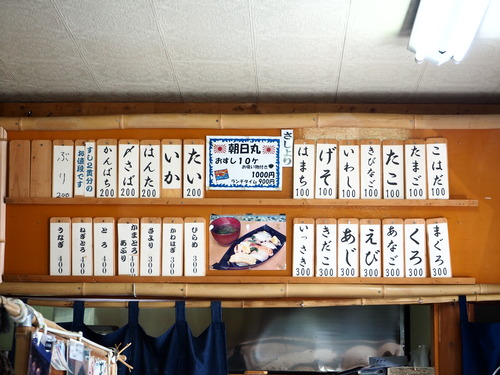 こはだ 100
たまご 100
たこ 100
きびなご 100
いわし 100
げそ 100
はまち 100
さしより
朝日丸
おすし10ケ
お吸い物付き
1000円
ランチタイム 900円
たい 200
いか 200
はんたー 200
〆さば 200
かんぱち 200
すし2貫分の
お値段です
ぶり 200
まぐろ 300
くろ 300
あなご 300
えび 300
あじ 300
きだこ 300
いっさき 300
ひらめ
かわはぎ
さより
かまとろ
あぶり
とろ 400
ねぎとろ 400
うなぎ 400